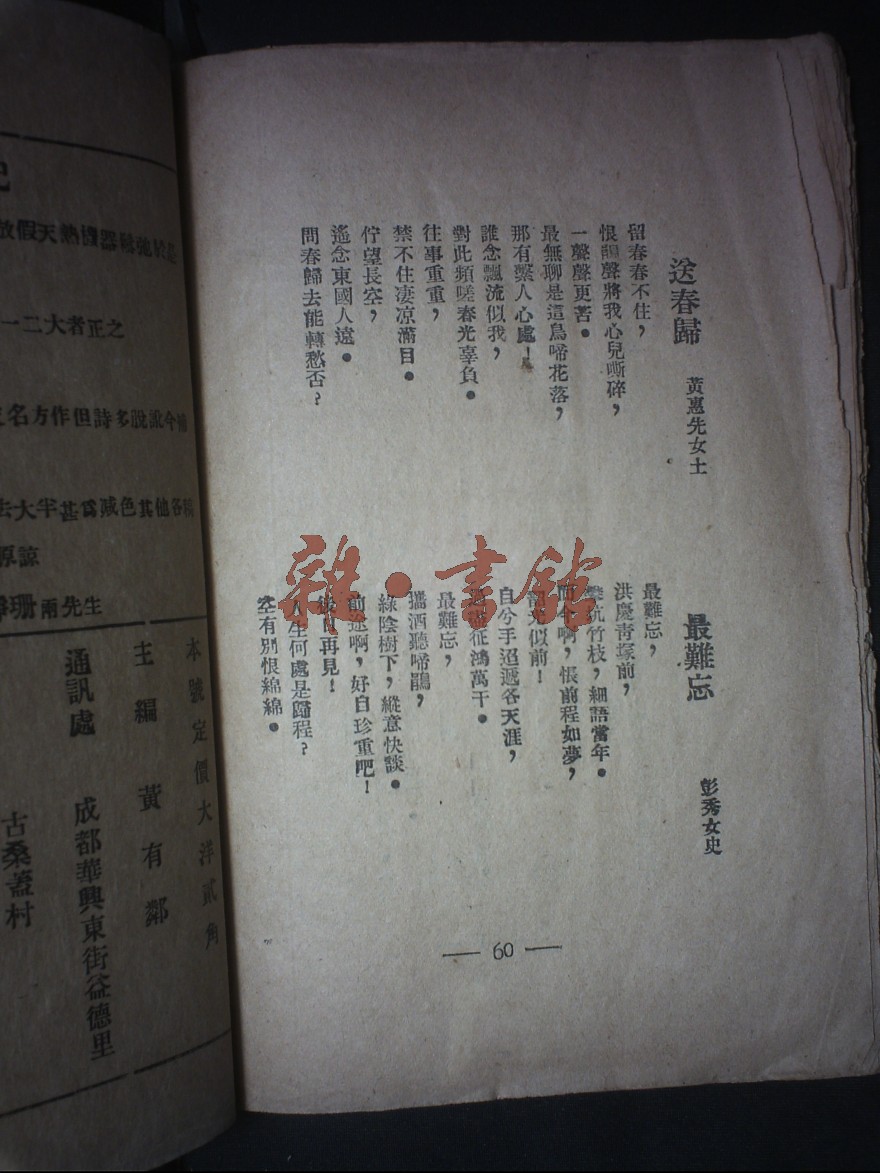 送春歸
黃惠先女士
留春春不住,
恨鵑聲將我心兒嘶碎,
一聲聲更苦。
最無聊是這鳥啼花落,
那有繫人心處!
誰念飄流似我,
對此頻嗟春光辜負。
往事重重,
禁不住凄凉滿目。
佇望長空,
遙念東國人遠。
問春歸去能轉愁否?
最難忘
彭秀女史
最難忘,
洪慶青塚前,
竹枝,細語當年。
啊,悵前程如夢,
似前!
自分手迢遞各天涯,
征鴻萬千。
最難忘,
攜酒聽啼鵑,
綠陰樹下,縱意快談。
前途啊,好自珍重吧!
再見!
人生何處是歸程?
空有別恨綿綿。
60
雜·書館
放假天熱機器
一二大者正之
名方作但詩多脫訛今
去大半甚爲減色其他各稿
原諒
珊兩先生
本號定價大洋貳角
主編 黃有鄰
通訊處 成都華興東街益德里
古桑蓋村